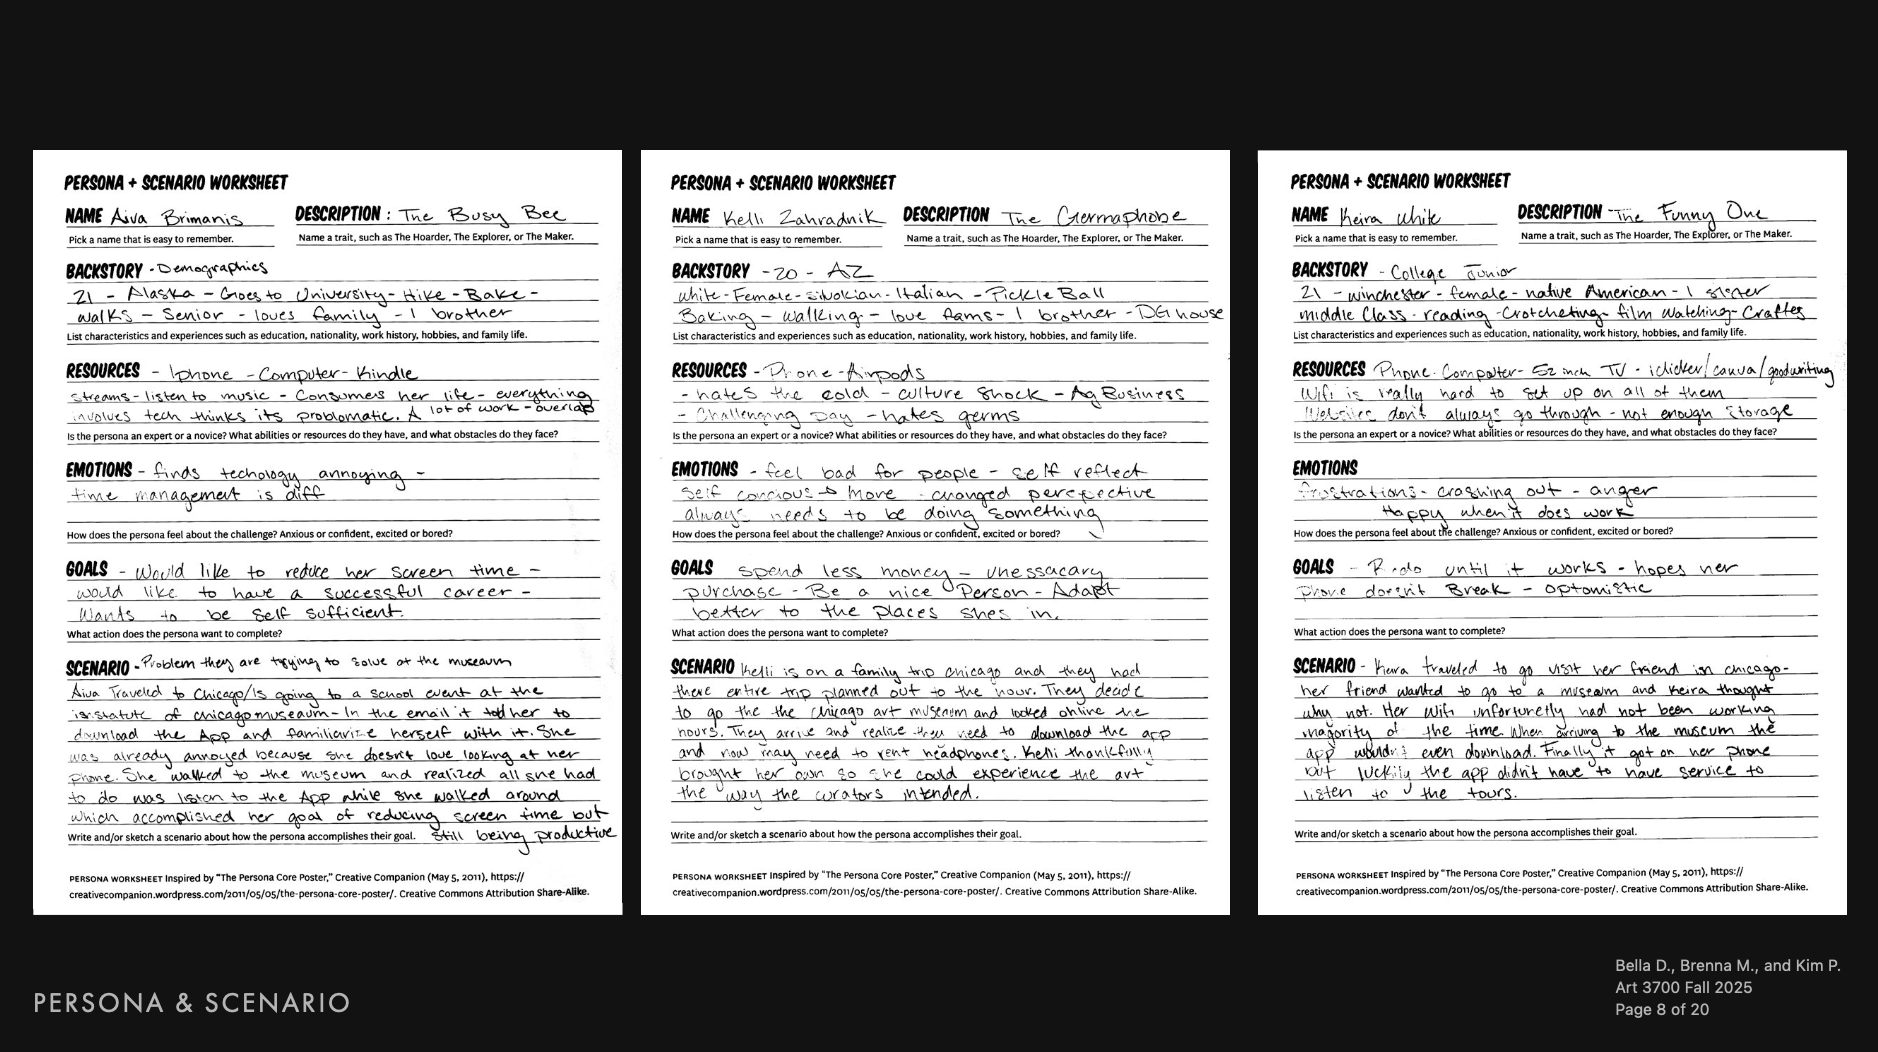 PERSONA + SCENARIO WORKSHEET
NAME Aiva Brimanis
DESCRIPTION : The Busy Bee
Pick a name that is easy to remember.
Name a trait, such as The Hoarder, The Explorer, or The Maker.
BACKSTORY - Demographics
21 - Alaska - Goes to University - Hike - Bake -
walks - Senior - loves family - 1 brother
List characteristics and experiences such as education, nationality, work history, hobbies, and family life.
RESOURCES - Iphone - Computer - Kindle
streams - listen to music - Consumers her life - everything
involves tech thinks its problomatic. A lot of work - overlap
Is the persona an expert or a novice? What abilities or resources do they have, and what obstacles do they face?
EMOTIONS - finds techology annoying -
time management is diff
How does the persona feel about the challenge? Anxious or confident, excited or bored?
GOALS - Would like to reduce her screen time -
would like to have a successful career -
Wants to be self sufficient.
What action does the persona want to complete?
SCENARIO - Problem they are trying to solve at the museaum
Aiva Traveled to Chicago/Is going to a school event at the
isistatute of chicago museaum - In the email it told her to
download the App and familiarize herself with it. She
was already annoyed because she doesn't love looking at her
phone. She walked to the museum and realized all she had
to do was listen to the App while she walked around
which accomplished her goal of reducing screen time but
Write and/or sketch a scenario about how the persona accomplishes their goal. still being productive
PERSONA WORKSHEET Inspired by "The Persona Core Poster," Creative Companion (May 5, 2011), https://
creativecompanion.wordpress.com/2011/05/05/the-persona-core-poster/. Creative Commons Attribution Share-Alike.
PERSONA + SCENARIO WORKSHEET
NAME Kelli Zahradnik
DESCRIPTION The Germaphobe
Pick a name that is easy to remember.
Name a trait, such as The Hoarder, The Explorer, or The Maker.
BACKSTORY - 20 - AZ
white - Female - - Italian - Pickle Ball
Baking - walking - love fams - 1 brother - DG house
List characteristics and experiences such as education, nationality, work history, hobbies, and family life.
RESOURCES - Phone - Airpods
- hates the cold - culture shock - Ag Business
- Challenging Day - hates germs
Is the persona an expert or a novice? What abilities or resources do they have, and what obstacles do they face?
EMOTIONS - feel bad for people - self reflect
self concious → More - changed perepective
always needs to be doing something
How does the persona feel about the challenge? Anxious or confident, excited or bored?
GOALS spend less money - unessacary
purchase - Be a nice Person - Adapt
better to the places shes in.
What action does the persona want to complete?
SCENARIO Kelli is on a family trip chicago and they had
there entire trip planned out to the hour. They decide
to go the the chicago art museum and looked online the
hours. They arrive and realize they need to download the app
and now may need to rent headphones. Kelli thankfully
brought her own so she could experience the art
the way the curators intended.
Write and/or sketch a scenario about how the persona accomplishes their goal.
PERSONA WORKSHEET Inspired by "The Persona Core Poster," Creative Companion (May 5, 2011), https://
creativecompanion.wordpress.com/2011/05/05/the-persona-core-poster/. Creative Commons Attribution Share-Alike.
PERSONA + SCENARIO WORKSHEET
NAME Keira White
DESCRIPTION The Funny One
Pick a name that is easy to remember.
Name a trait, such as The Hoarder, The Explorer, or The Maker.
BACKSTORY - College Junior
21 - winchester - female - native American - 1 sister
middle Class - reading - Crotcheting - film watching - Craftes
List characteristics and experiences such as education, nationality, work history, hobbies, and family life.
RESOURCES Phone - Computer - 52 inch TV - iclicker/canva/goodwriting
Wifi is really hard to set up on all of them
Websites don't always go through - not enough storage
Is the persona an expert or a novice? What abilities or resources do they have, and what obstacles do they face?
EMOTIONS
frustrations - crashing out - anger
Happy when it does work
How does the persona feel about the challenge? Anxious or confident, excited or bored?
GOALS - Redo until it works - hopes her
phone doesn't Break - optomistic
What action does the persona want to complete?
SCENARIO - Keira traveled to go visit her friend in chicago -
her friend wanted to go to a museam and Keira thought
why not. Her Wifi unforturetly had not been working
majority of the time. When arriving to the museum the
app wouldn't even download. Finally it got on her phone
but luckily the app didn't have to have service to
listen to the tours.
Write and/or sketch a scenario about how the persona accomplishes their goal.
PERSONA WORKSHEET Inspired by "The Persona Core Poster," Creative Companion (May 5, 2011), https://
creativecompanion.wordpress.com/2011/05/05/the-persona-core-poster/. Creative Commons Attribution Share-Alike.
PERSONA & SCENARIO
Bella D., Brenna M., and Kim P.
Art 3700 Fall 2025
Page 8 of 20